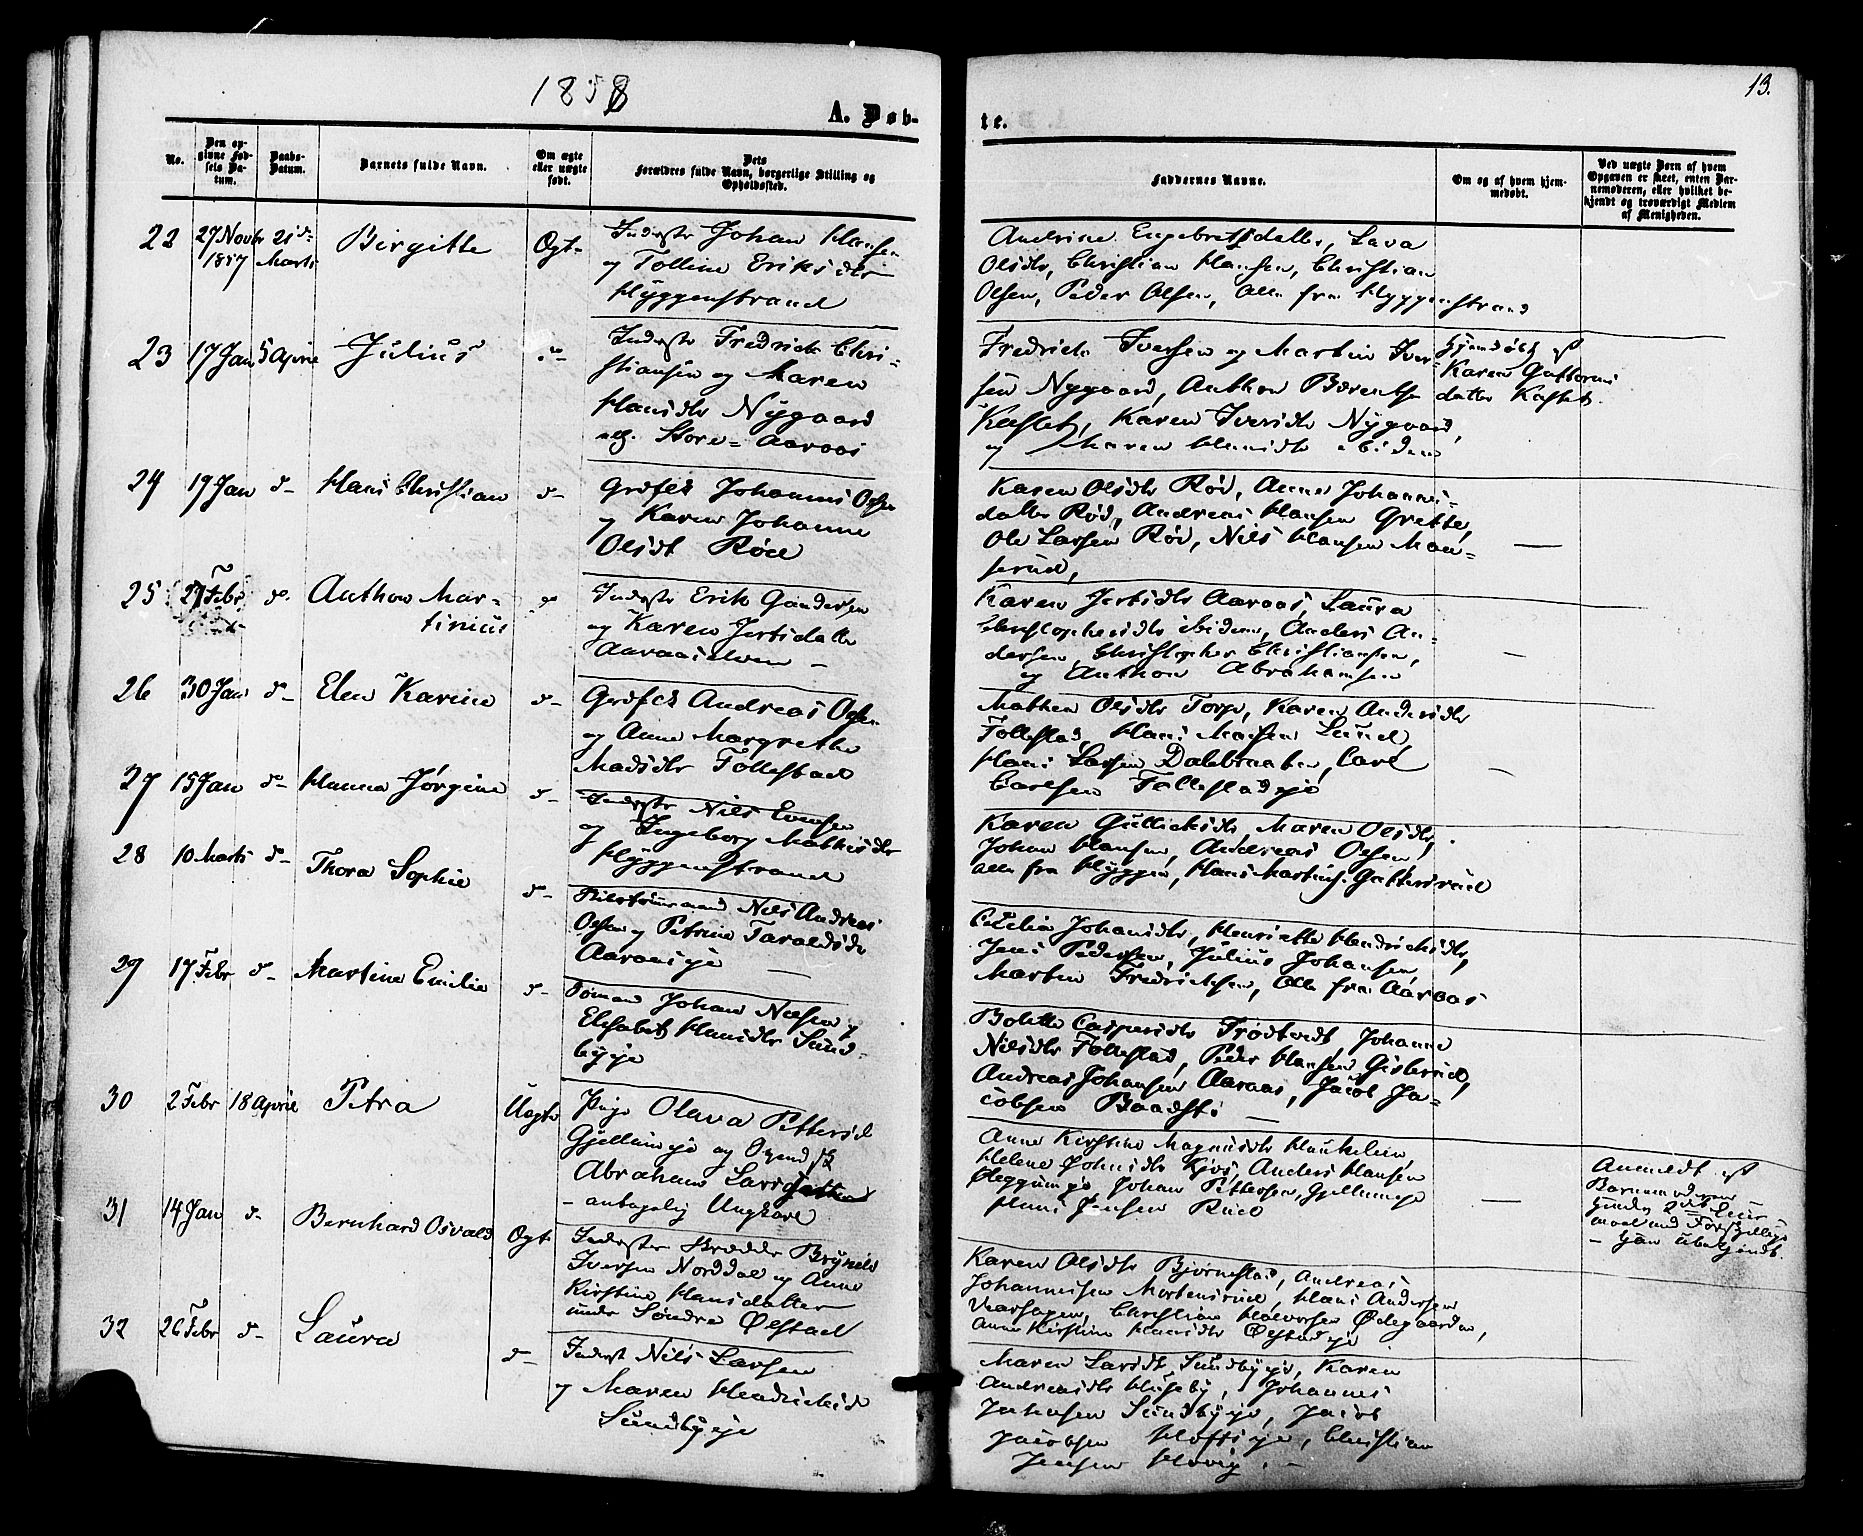 13.
1858
A. Døb-
te.
No.
Den op-
givne Fød-
sels Da-
tum.
Daabs-
Datum.
Barnets fulde Navn.
Om ægte
eller uægte
født.
Dets
Forældres fulde Navn, borgerlige Stilling og
Opholdssted.
Faddernes Navne.
Om og af hvem hjem-
medøbt.
Ved uægte Børn af hvem
Opgaven er skeet, enten Bar-
nemoderen, eller hvilket be-
kjendt og troværdigt Medlem
af Menigheden.
22 27 Novbr 1857 21de Marts Birgitte Ægt-
Inderste Johan Hansen
ogÆlline Eriksdtr
Hyggenstrand
Andrine Engebretsdatter, Lava
Olsdtr, Christian Hansen, Christian
Olsen, Peder Olsen, Alle fra Hyggenstrand
23 17 Jan 5 April Julius d-
Inderste Fredrich Chri-
stiansen og Maren
Hansdtr Nygaard
Store-Aaraas
Fredrik Iversen og Martin Iver-
sen Nygaard, Anthon Berentsen
Kastet, Karen Iversdtr Nygaard,
og Maren Hansdtr ibidem
Hjemdøbt af
Karen Guttorms
datter Kastet.
24 19 Jan d- Hans Christian d-
Grdfck Johannes Olsen
og Karen Johanne
Olsdt Röed
Karen Olsdtr Röd, Anne Johannes-
datter Röd, Andreas Hansen Grette,
Ole Larsen Röd, Nils Hansen Mau-
serud,
25 27 Febr d- Anthon Mar-
tinius d-
Inderste Erik Gundersen
og Karen Jertsdatter
Aaraaselven -
Karen Jertsdtr Aaraas, Laura
Christophersdtr ibidem, Anders An-
dersen, Christopher Christiansen,
og Anthon Abrahamsen
26 30 Jan d- Elen Karine d-
Grdfck Andreas Olsen
og Anne Margrethe
Madsdtr Föllestad
Mathea Olsdtr Torp, Karen Andersdtr
Föllestad, Hans Madsen Lund
Hans Larsen Dalebraaten, Carl
Carlsen Föllestadeje
27 15 Jan d- Hanna Jörgine d-
Inderste Nils Evensen
og Ingeborg Mathisdtr
Hyggenstrand
Karen Gullichsdtr, Maren Olsdtr,
Johan Hansen, Andreas Olsen,
alle fra Hyggen, Hans Martins. Guttersrud
28 10 Marts d- Thora Sophie d-
Nils Andreas
Olsen og Petrine Taraldsdtr
Aaraaseje
Cecilia Johansdtr, Henriette Hendrichsdtr,
Jens Pedersen, Julius Johansen,
Martin Fredrichsen, Alle fra Aaraas
29 17 Febr d- Martine Emilie d-
Sömand Johan Nilsen og
Elisabeth Hansdtr Sund-
byeje
Bolette Caspersdtr Frödtvedt, Johanne
Nilsdtr Föllestad, Peder Hansen Gislerud,
Andreas Johansen Aaraas, Jacob Ja-
cobsen Baadsti
30 2 Febr 18 April Petra Uægte
Pige Olava Pettersd
Gjellumeje og
Abraham Larsen
- antagelig Ungkarl
Anne Kirstine Magnusdtr Haukelien
Helene Johnsdtr Kjos, Anders Hansen
Johan Pettersen, Gjellumeje
Hans Jensen Rued
Anmeldt af
Barnemoderen -
hendes 2det Leier
maal med
- han ubekjendt
31 14 Jan d- Bernhard Osvald Ægt.
Inderste Skrædder Brynild
Iversen Norddal og Anne
Kirstine Hansdatter
under Söndre Ølstad
Karen Olsdtr Björnestad, Andreas
Johannesen Mortensrud, Hans Andersen
Christian Halvorsen Ødegaarden,
Anne Kirstine Hansdtr Ølstadeje
32 26 Febr d- Laura d-
Inderst Nils Larsen
og Maren Hendrichsd
Sundbyeje
Maren Larsdt. Sundbyeje, Karen
Andreasdtr Huseby, Johannes
Johansen Sundbyeje, Jacob
Jacobsen Hoffseje, Christian
Jensen Hovig. -